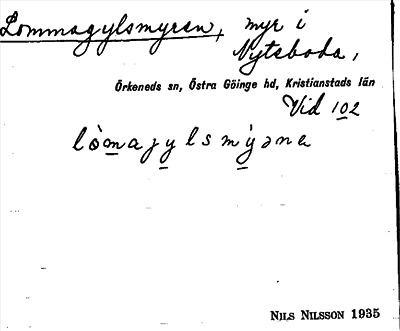 Lommagylsmyren, myr i
Nyteboda,
Örkeneds sn, Östra Göinge hd, Kristianstads län
Vid 102
lòmajylsmýəne
NILS NILSSON 1935